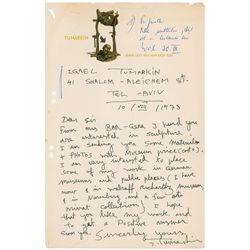 TUMARKIN
IGAEL TUMARKIN
41 SHALOM-ALEICHEM St.
TEL-AVIV
10/VIII/1973
Dear Sir
From our BAR-GERA I heard you
are interested in sculpture
I am sending you some material
+ PHOTOS with Museum price (50%).
I am very interested to place
some of my work in
museums and public places (I have
now in museum
in Nürnberg and a few other
private collections) I hope
that you like my work and
to get a Positive answer
Sincerely yours
Tumarkin